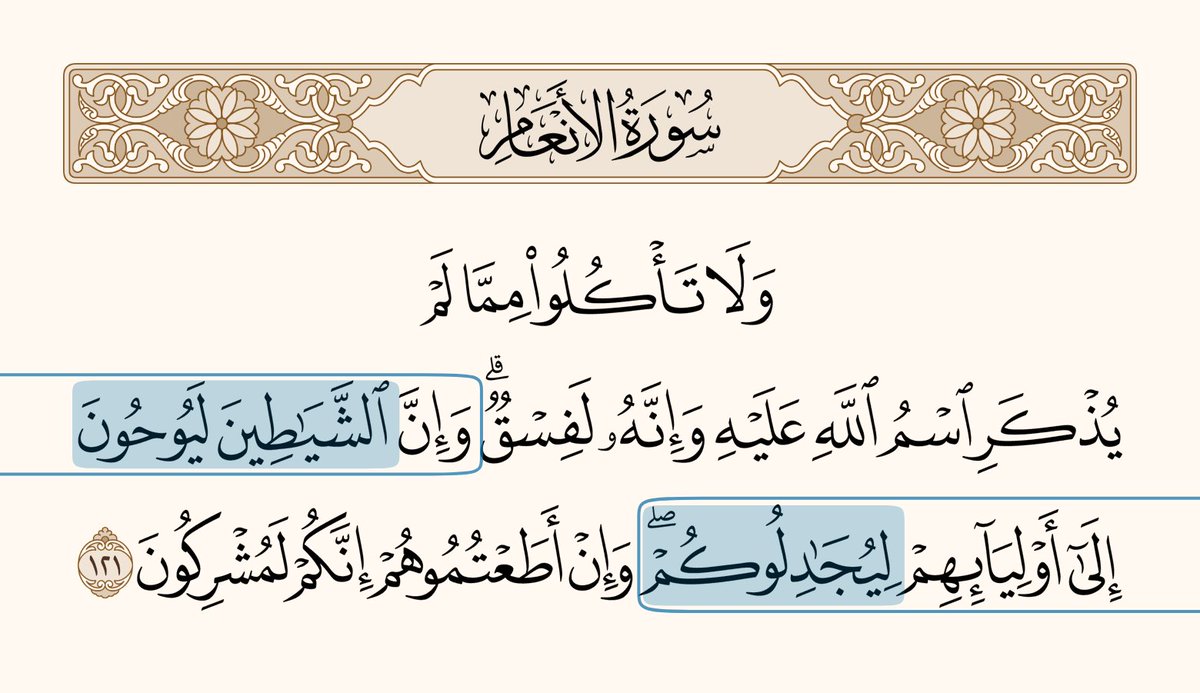 سُورَةُ الأَنْعَامِ
وَلَا تَأۡكُلُواْ مِمَّا لَمۡ
يُذۡكَرِ ٱسۡمُ ٱللَّهِ عَلَيۡهِ وَإِنَّهُۥ لَفِسۡقٞۗ وَإِنَّ ٱلشَّيَٰطِينَ لَيُوحُونَ
إِلَىٰٓ أَوۡلِيَآئِهِمۡ لِيُجَٰدِلُوكُمۡۖ وَإِنۡ أَطَعۡتُمُوهُمۡ إِنَّكُمۡ لَمُشۡرِكُونَ ١٢١